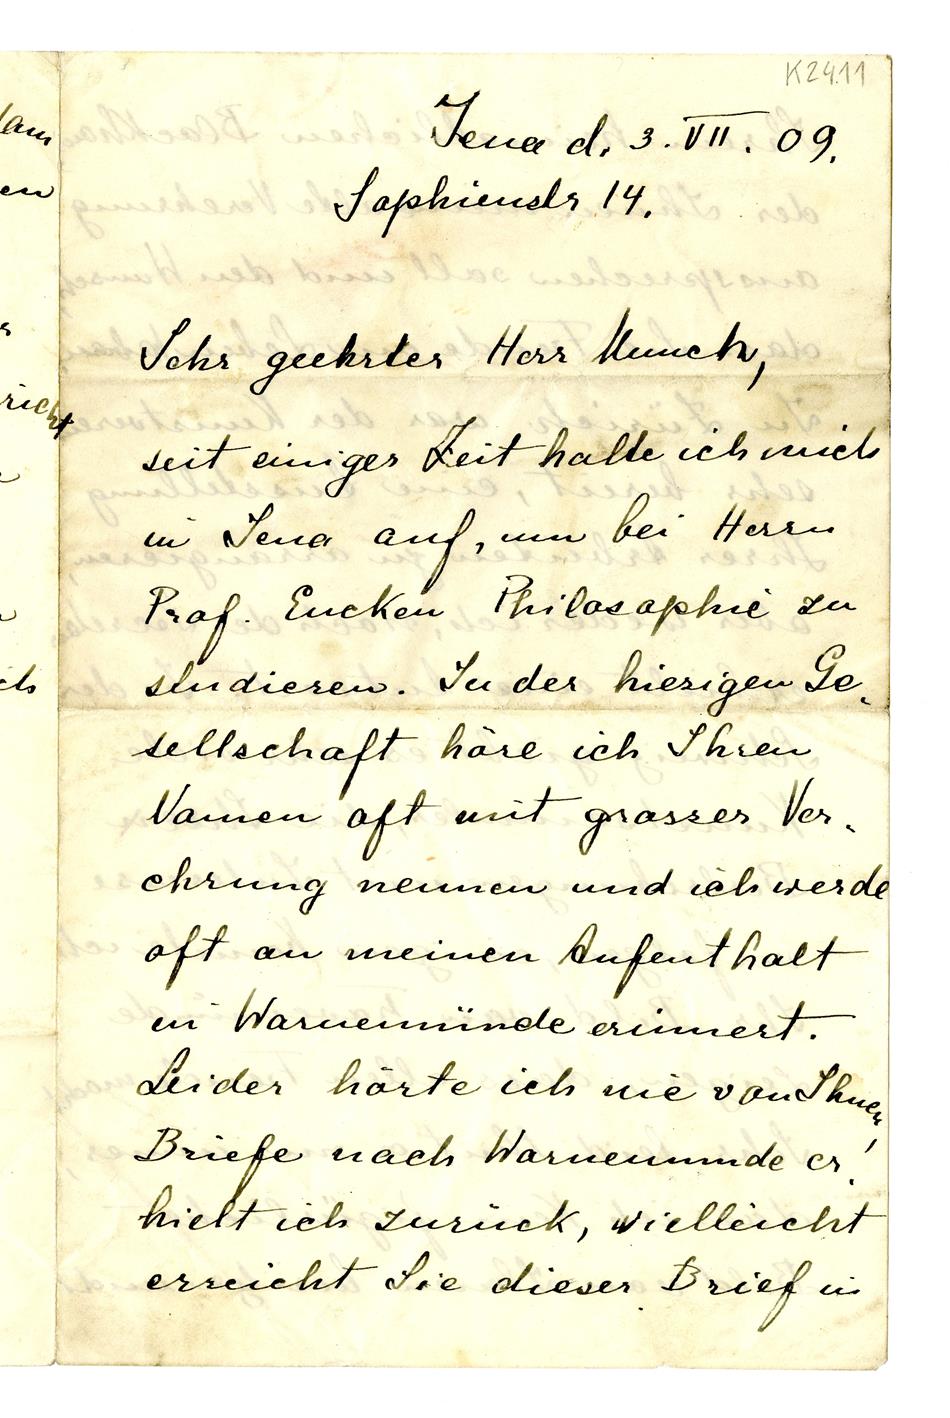 K2411
Jena d. 3. VII. 09.
Sophienstr 14.
Sehr geehrter Herr Munch,
seit einiger Zeit halte ich mich
in Jena auf, um bei Herrn
Prof. Eucken Philosophie zu
studieren. In der hiesigen Ge-
sellschaft höre ich Ihren
Namen oft mit grosser Ver-
ehrung nennen und ich werde
oft an meinen Aufenthalt
in Warnemünde erinnert.
Leider hörte ich nie von Ihnen!
Briefe nach Warnemünde er-
hielt ich zurück, vielleicht
erreicht Sie dieser Brief in